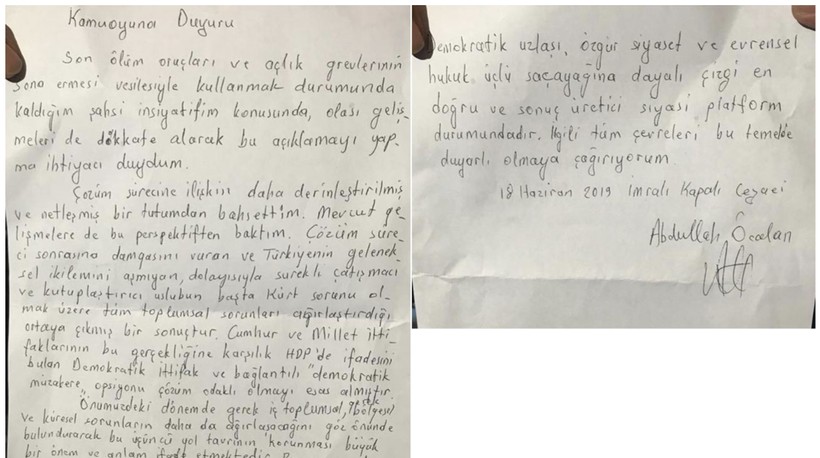 Kamuoyuna Duyuru
Son ölüm oruçları ve açlık grevlerinin
sona ermesi vesilesiyle kullanmak durumunda
kaldığım şahsi insiyatifim konusunda, olası geliş-
meleri de dikkate alarak bu açıklamayı yap-
ma ihtiyacı duydum.
Çözüm sürecine ilişkin daha derinleştirilmiş
ve netleşmiş bir tutumdan bahsettim. Mevcut ge-
lişmelere de bu perspektiften baktım. Çözüm süre-
ci sonrasına damgasını vuran ve Türkiyenin gelenek-
sel ikilemini aşmıyan, dolayısıyla sürekli çatışmacı
ve kutuplaştırıcı uslubun başta Kürt sorunu ol-
mak üzere tüm toplumsal sorunları ağırlaştırdığı
ortaya çıkmış bir sonuçtur. Cumhur ve Millet itti-
faklarının bu gerçekliğine karşılık HDP'de ifadesini
bulan Demokratik ittifak ve bağlantılı "demokratik
müzakere" opsiyonu çözüm odaklı olmayı esas almıştır.
Önümüzdeki dönemde gerek iç toplumsal, gerek bölgesel
ve küresel sorunların daha da ağırlaşacağını göz önünde
bulundurarak bu üçüncü yol tavrının korunması büyük
bir önem ve anlam ifade etmektedir.
Demokratik uzlaşı, özgür siyaset ve evrensel
hukuk üçlü saçayağına dayalı çizgi en
doğru ve sonuç üretici siyasi platform
durumundadır. İlgili tüm çevreleri bu temelde
duyarlı olmaya çağırıyorum.
18 Haziran 2019 İmralı Kapalı Cezaevi
Abdullah Öcalan